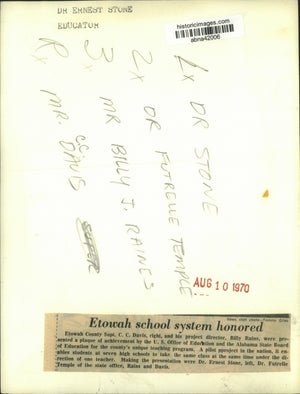 DR ERNEST STONE
EDUCATOR
historicimages.com
abna42006
1x DR STONE
2x DR FUTRELLE TEMPLE
3x MR BILLY J. RAINES
Rx MR C.C. DAVIS
AUG 10 1970
Etowah school system honored
Etowah County Supt. C. C. Davis, right, and his project director, Billy Rains, were pre-
sented a plaque of achievement by the U. S. Office of Education and the Alabama State Board
of Education for the county's unique teaching program. A pilot project in the nation, it en-
ables students at seven high schools to take the same class at the same time under the di-
rection of one teacher. Making the presentation were Dr. Ernest Stone, left, Dr. Futrelle
Temple of the state office, Rains and Davis.